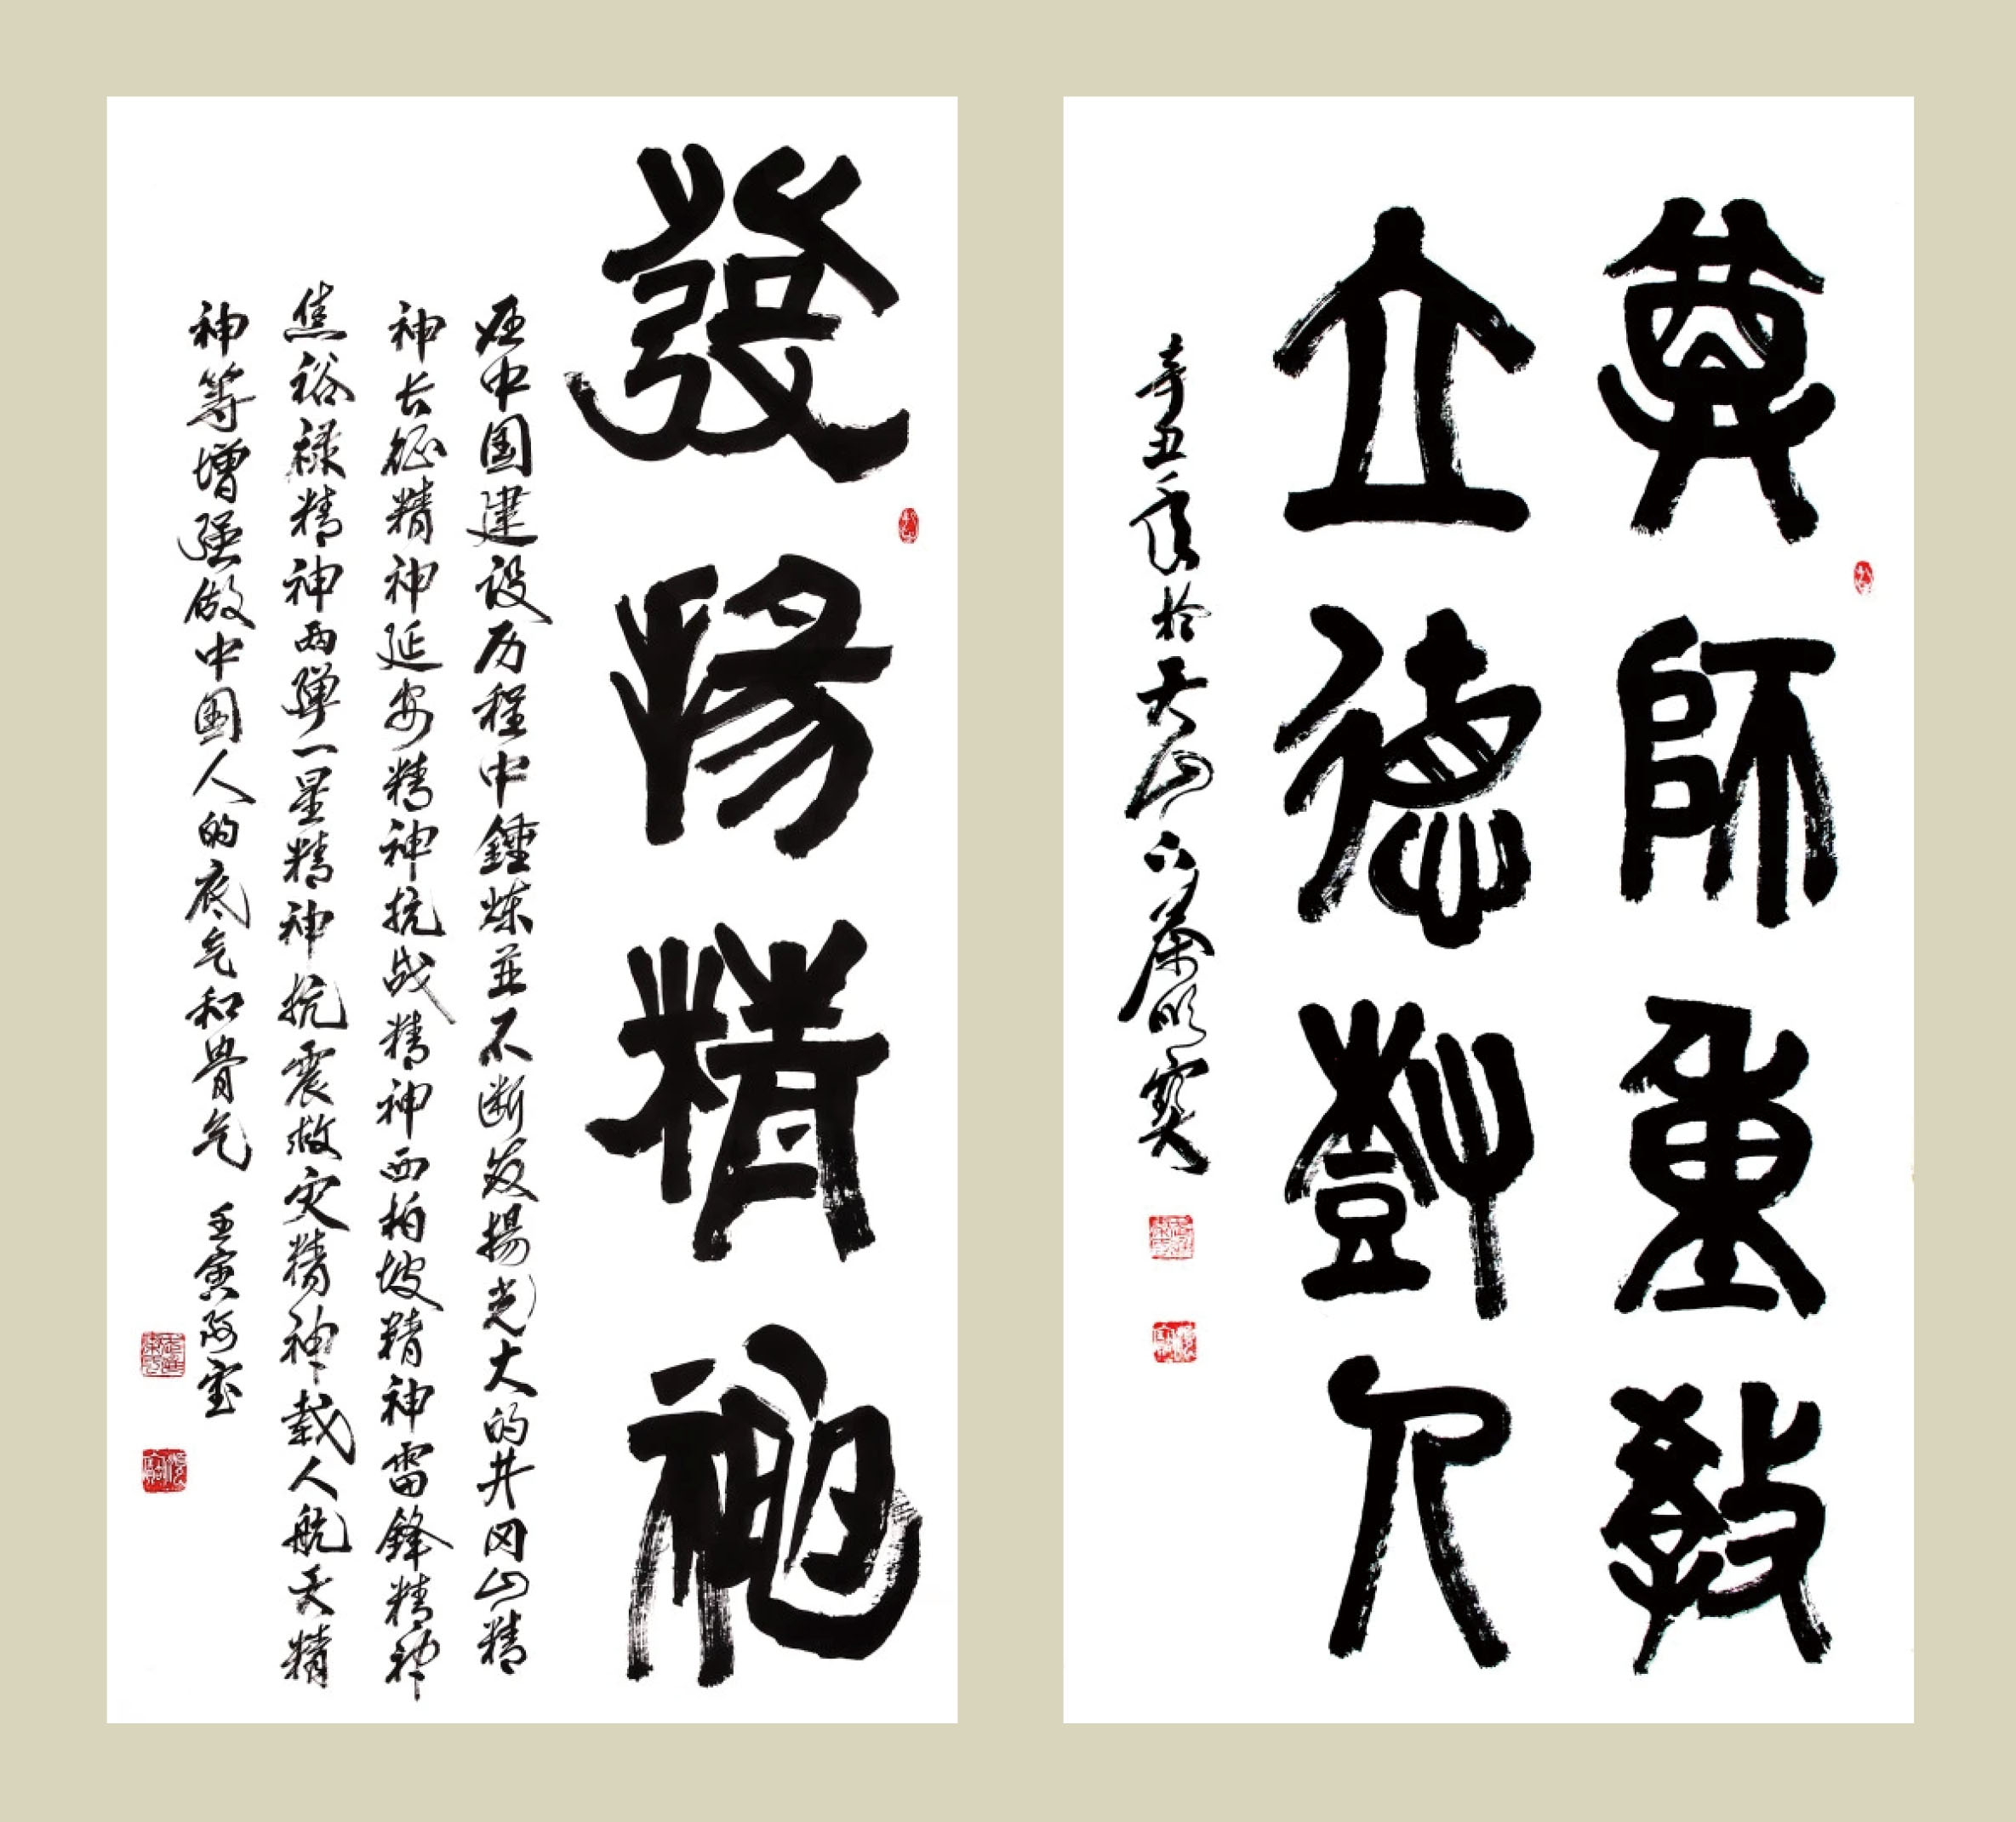 尊師重教
立德樹人
辛丑年於天山下
發揚精神
在中国建设历程中錘炼並不断发揚光大的井冈山精
神长征精神延安精神抗战精神西柏坡精神雷鋒精神
焦裕禄精神两弹一星精神抗震救灾精神载人航天精
神等增强做中国人的底气和骨气 壬寅阿宝